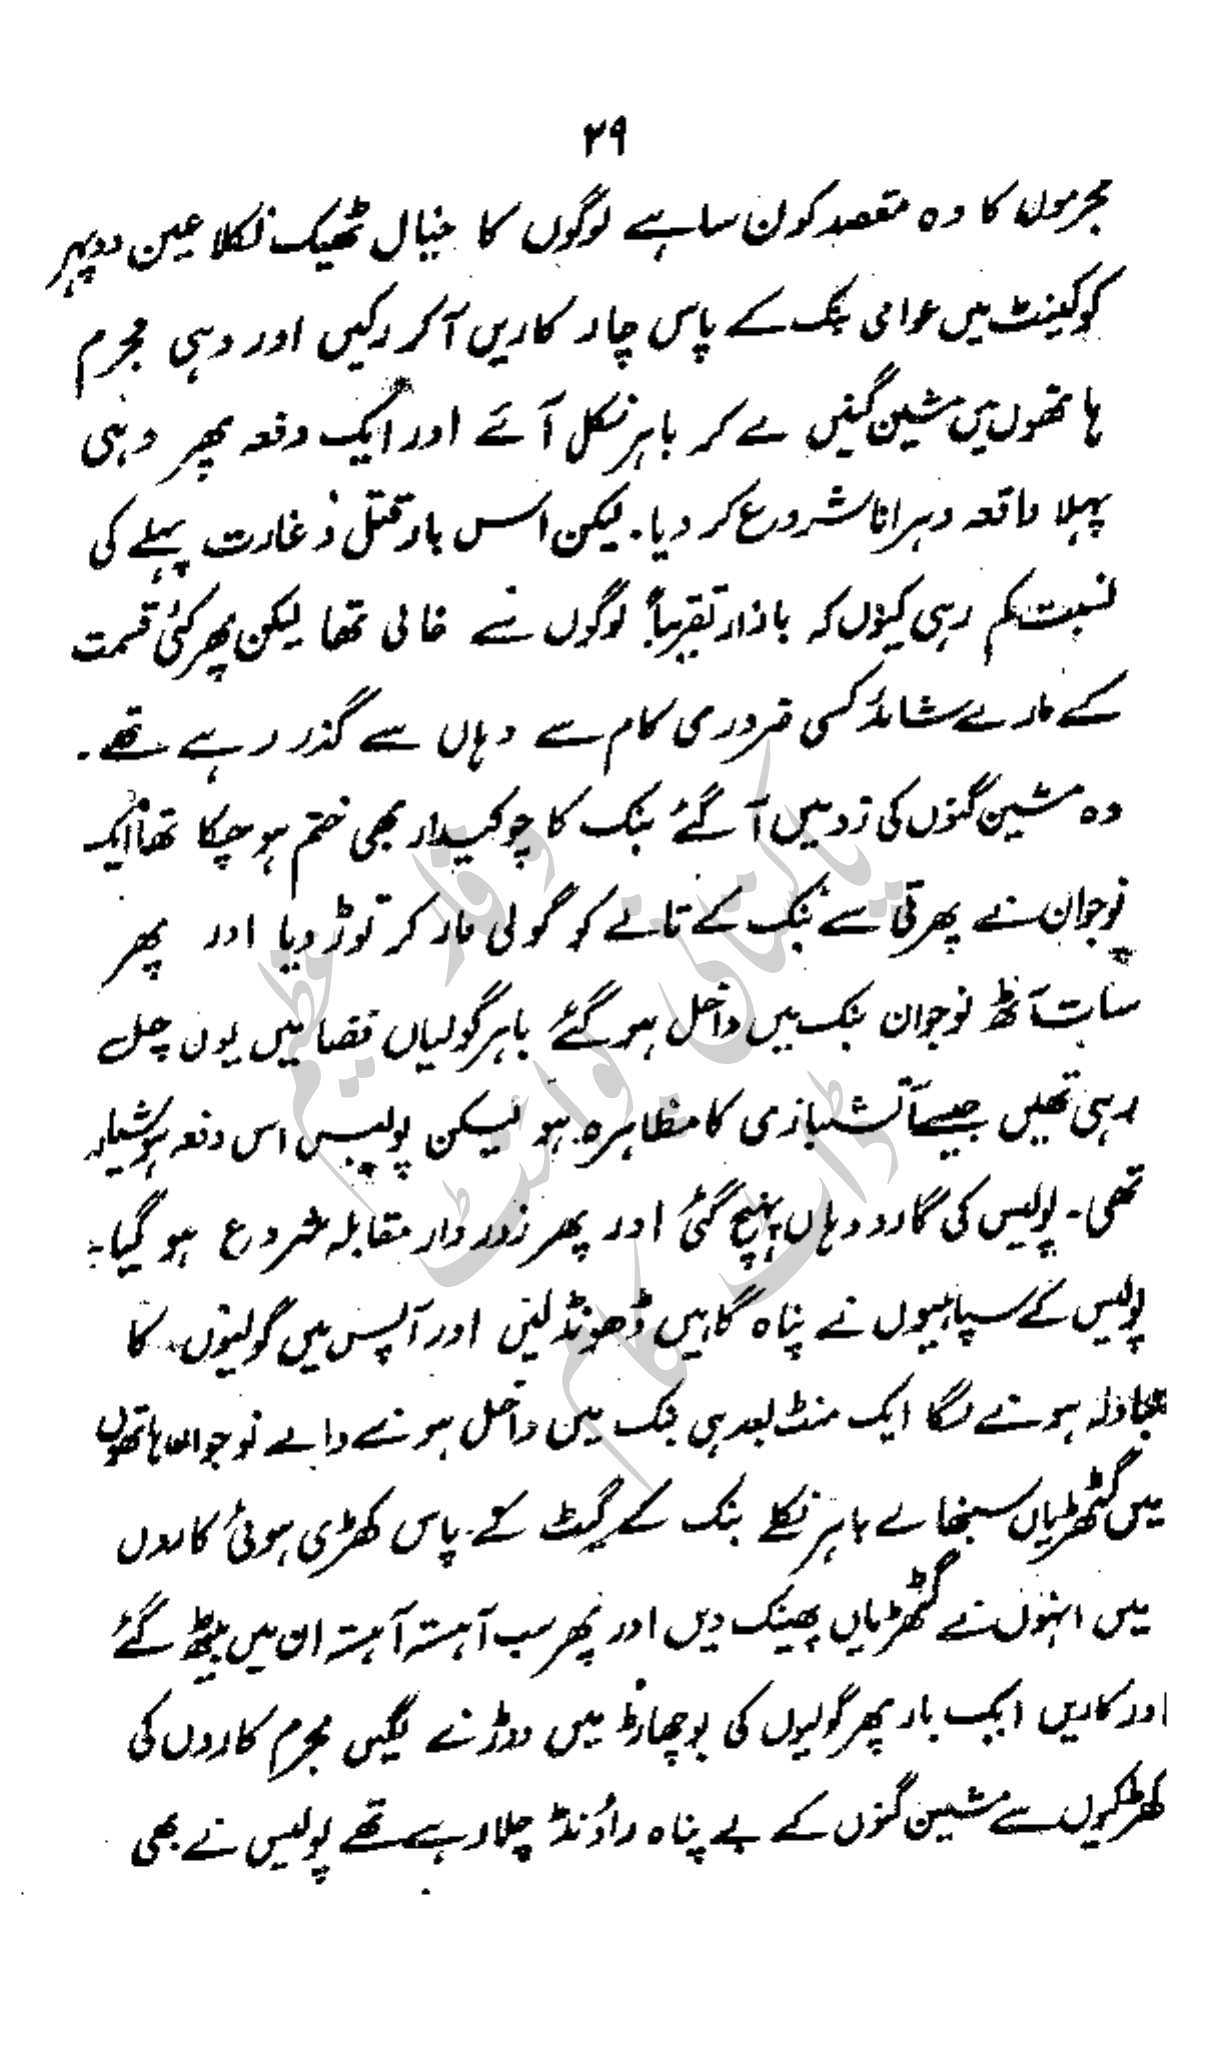 ۲۹
مجرموں کا وہ مقصد کون سا ہے لوگوں کا خیال ٹھیک نکلا عین دوپہر
کو کینٹ میں عوامی بنک کے پاس چار کاریں آ کر رکیں اور وہی مجرم
ہاتھوں میں مشین گنیں لے کر باہر نکل آئے اور ایک دفعہ پھر وہی
پہلا واقعہ دہرانا شروع کر دیا۔ لیکن اس بار قتل و غارت پہلے کی
نسبت کم رہی کیوں کہ بازار تقریباً لوگوں سے خالی تھا لیکن پھر کئی قسمت
کے مارے شائد کسی ضروری کام سے وہاں سے گذر رہے تھے۔
وہ مشین گنوں کی زد میں آ گئے بنک کا چوکیدار بھی ختم ہو چکا تھا ایک
نوجوان نے پھرتی سے بنک کے تالے کو گولی مار کر توڑ دیا اور پھر
سات آٹھ نوجوان بنک میں داخل ہو گئے باہر گولیاں فضا میں یوں چل
رہی تھیں جیسے آتشبازی کا مظاہرہ ہو لیکن پولیس اس دفعہ ہوشیار
تھی۔ پولیس کی گارد وہاں پہنچ گئی اور پھر زور دار مقابلہ شروع ہو گیا۔
پولیس کے سپاہیوں نے پناہ گاہیں ڈھونڈ لیں اور آپس میں گولیوں کا
تبادلہ ہونے لگا ایک منٹ بعد ہی بنک میں داخل ہونے والے نوجوان ہاتھوں
میں گٹھڑیاں سنبھالے باہر نکلے بنک کے گیٹ کے پاس کھڑی ہوئی کاروں
میں انہوں نے گٹھڑیاں پھینک دیں اور پھر سب آہستہ آہستہ ان میں بیٹھ گئے
اور کاریں ایک بار پھر گولیوں کی بوچھاڑ میں دوڑنے لگیں مجرم کاروں کی
کھڑکیوں سے مشین گنوں کے بے پناہ راؤنڈ چلا رہے تھے پولیس نے بھی
وقار عظیم
پاکستانی پوائنٹ
ڈاٹ کام